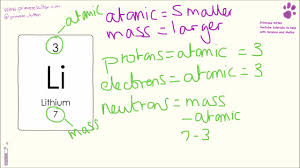 www.primrosekitten.com
@primrose_kitten
atomic
3
Li
Lithium
7
mass
atomic = smaller
mass = larger
protons = atomic = 3
electrons = atomic = 3
neutrons = mass
- atomic
7 - 3
Primrose Kitten
YouTube tutorials to help
with Science and Maths